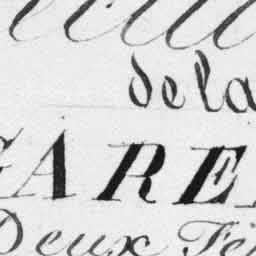 de la
ARE
Deux Fê